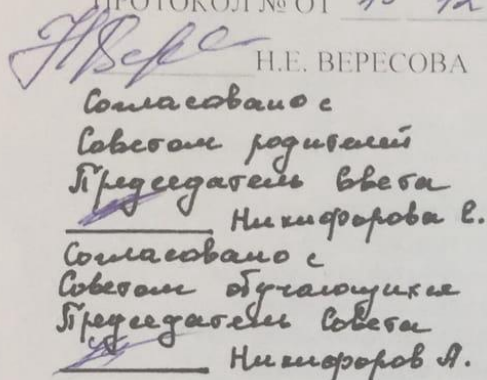 ПРОТОКОЛ № ОТ
Н.Е. ВЕРЕСОВА
Согласовано с
Советом родителей
Председатель Совета
Никифорова Е.
Согласовано с
Советом обучающихся
Председатель Совета
Никифоров А.